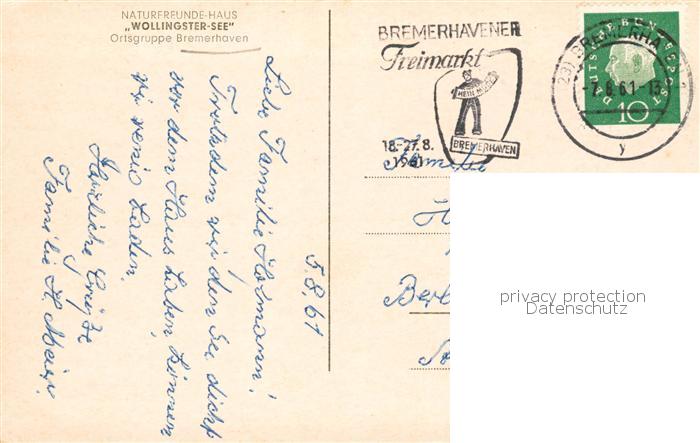 NATURFREUNDE-HAUS
„WOLLINGSTER-SEE"
Ortsgruppe Bremerhaven
BREMERHAVENER
Freimarkt
HEIN MÜCK
BREMERHAVEN
18.-27.8.
1961
(23) BREMERHAVEN
-7.8.61-13
y
DEUTSCHE BUNDESPOST
10
5.8.61
Liebe Familie Hofmann!
Trotzdem wir den See dicht
vor dem Haus haben, können
wir wenig baden.
Herzliche Grüße
Familie H. Meier
Familie
H
Berl
privacy protection
Datenschutz